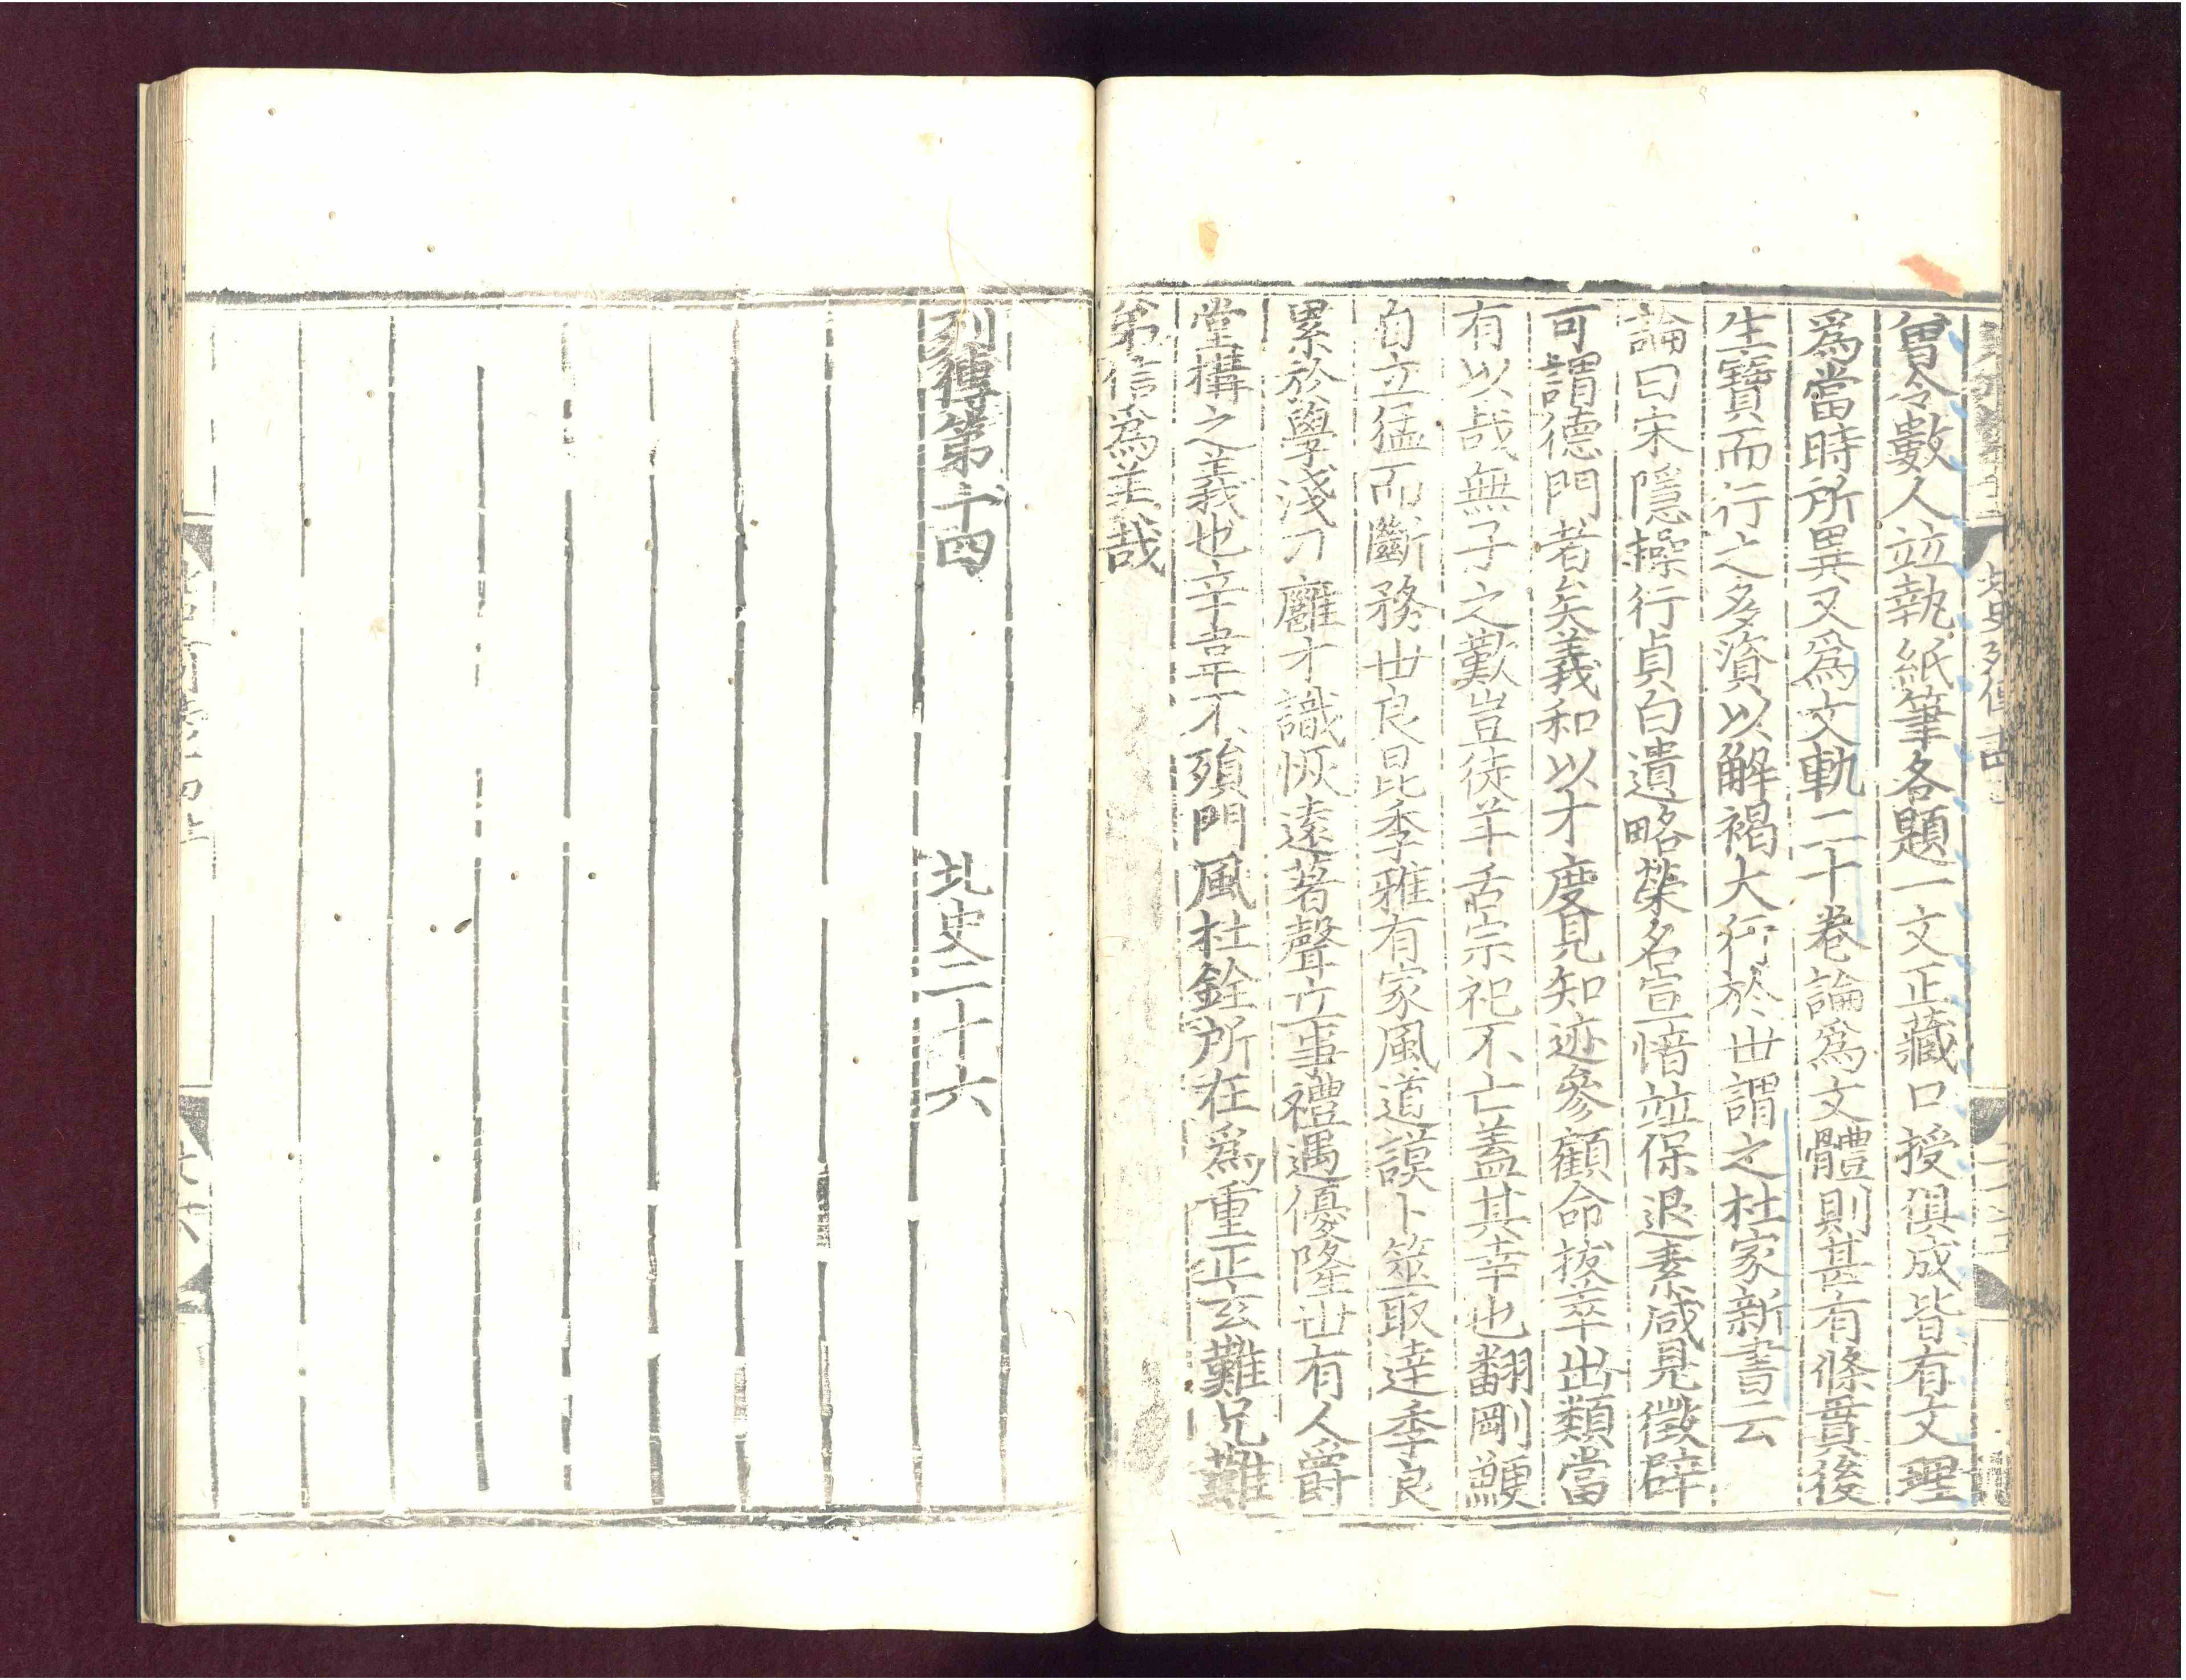 曾令數人竝執紙筆各題一文正藏口授俱成皆有文理
爲當時所異又爲文軌二十卷論爲文體則甚有條貫後
生寶而行之多資以解褐大行於世謂之杜家新書云
論曰宋隱操行貞白遺略榮名宣愔竝保退素咸見徵辟
可謂德門者矣義和以才度見知迹參顧命拔萃出類當
有以哉無子之歎豈徒羊舌宗祀不亡蓋其幸也翻剛鯁
自立猛而斷務世良昆季雅有家風道謨卜筮取達季良
累於學淺刀雍才識恢遠著聲立事禮遇優隆世有人爵
堂構之義也辛吉年不殞門風杜銓所在爲重正玄難兄難
弟信爲美哉
列傳第十四
北史二十六